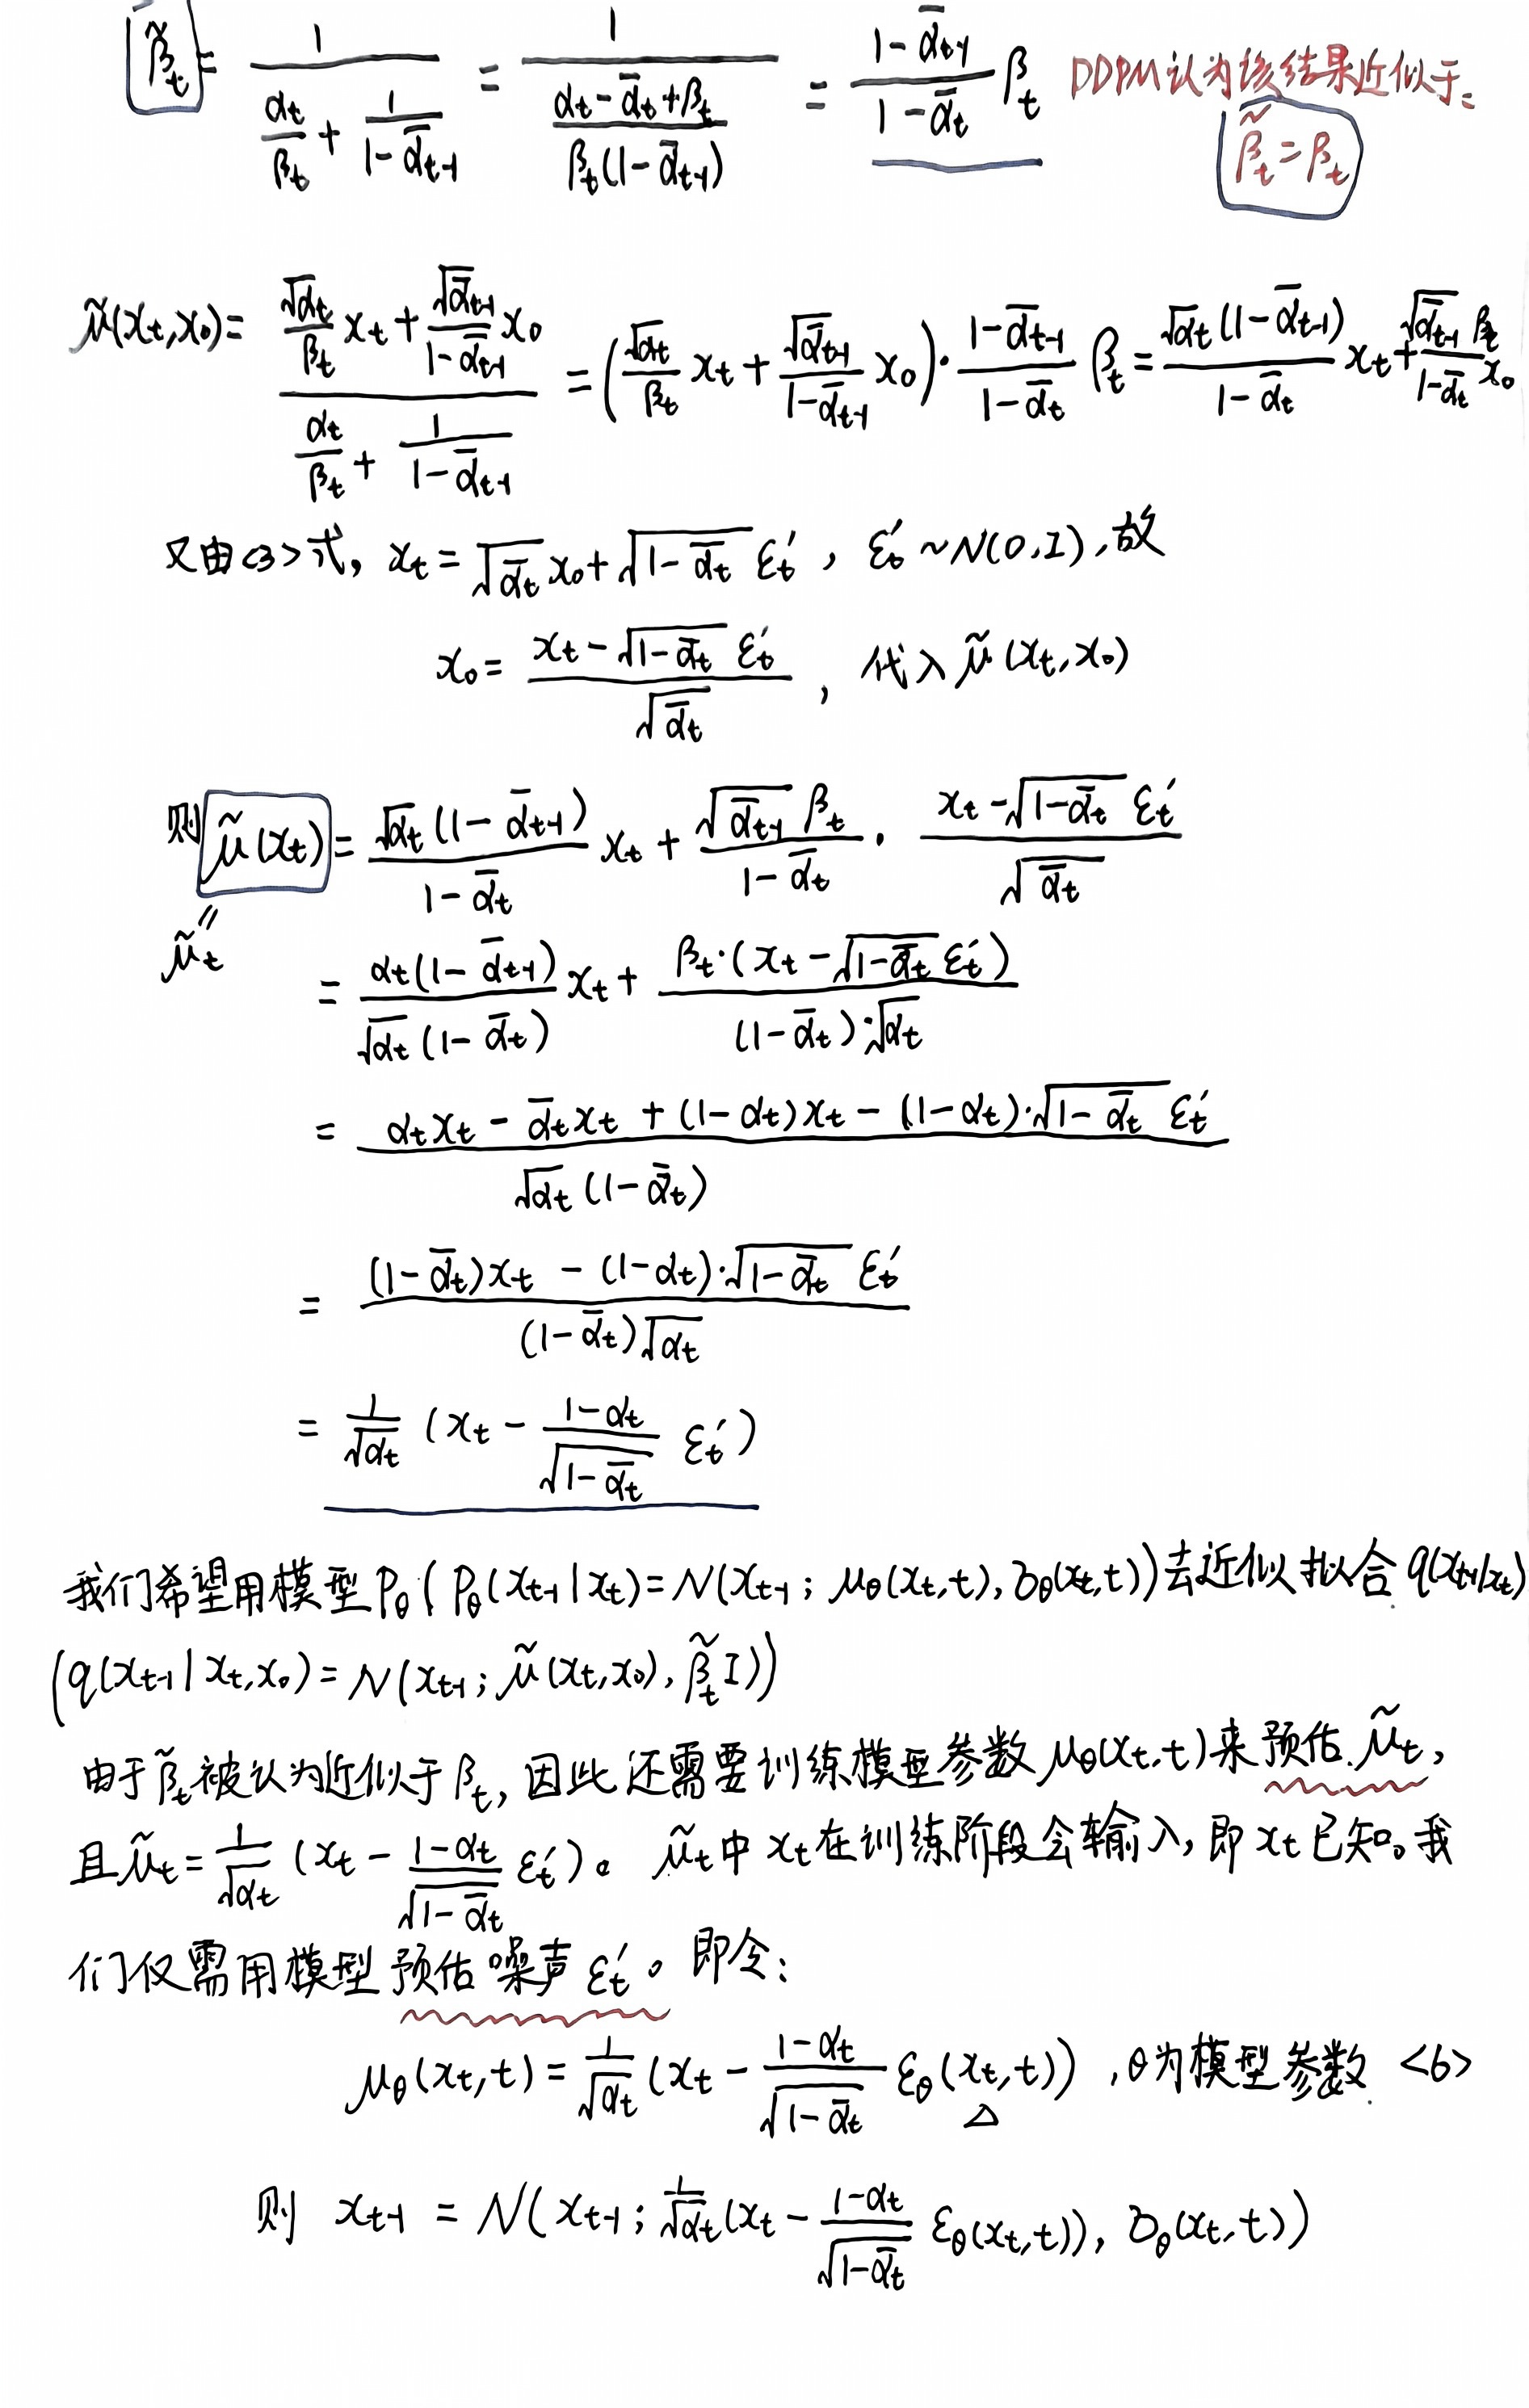 $\tilde{\beta}_t = \frac{1}{\frac{\alpha_t}{\beta_t} + \frac{1}{1-\bar{\alpha}_{t-1}}} = \frac{1}{\frac{\alpha_t - \bar{\alpha}_t + \beta_t}{\beta_t(1-\bar{\alpha}_{t-1})}} = \frac{1-\bar{\alpha}_{t-1}}{1-\bar{\alpha}_t}\beta_t$ DDPM认为该结果近似于:
$\tilde{\beta}_t = \beta_t$
$\tilde{\mu}(x_t,x_0) = \frac{\frac{\sqrt{\alpha_t}}{\beta_t}x_t + \frac{\sqrt{\bar{\alpha}_{t-1}}}{1-\bar{\alpha}_{t-1}}x_0}{\frac{\alpha_t}{\beta_t} + \frac{1}{1-\bar{\alpha}_{t-1}}} = \left(\frac{\sqrt{\alpha_t}}{\beta_t}x_t + \frac{\sqrt{\bar{\alpha}_{t-1}}}{1-\bar{\alpha}_{t-1}}x_0\right)\cdot\frac{1-\bar{\alpha}_{t-1}}{1-\bar{\alpha}_t}\beta_t = \frac{\sqrt{\alpha_t}(1-\bar{\alpha}_{t-1})}{1-\bar{\alpha}_t}x_t + \frac{\sqrt{\bar{\alpha}_{t-1}}\beta_t}{1-\bar{\alpha}_t}x_0$
又由<3>式, $x_t = \sqrt{\bar{\alpha}_t}x_0 + \sqrt{1-\bar{\alpha}_t}\varepsilon_t'$, $\varepsilon_t' \sim N(0,I)$,故
$x_0 = \frac{x_t - \sqrt{1-\bar{\alpha}_t}\varepsilon_t'}{\sqrt{\bar{\alpha}_t}}$, 代入 $\tilde{\mu}(x_t,x_0)$
则 $\tilde{\mu}(x_t) = \frac{\sqrt{\alpha_t}(1-\bar{\alpha}_{t-1})}{1-\bar{\alpha}_t}x_t + \frac{\sqrt{\bar{\alpha}_{t-1}}\beta_t}{1-\bar{\alpha}_t}\cdot\frac{x_t - \sqrt{1-\bar{\alpha}_t}\varepsilon_t'}{\sqrt{\bar{\alpha}_t}}$
$\tilde{\mu}_t$ $= \frac{\alpha_t(1-\bar{\alpha}_{t-1})}{\sqrt{\alpha_t}(1-\bar{\alpha}_t)}x_t + \frac{\beta_t\cdot(x_t - \sqrt{1-\bar{\alpha}_t}\varepsilon_t')}{(1-\bar{\alpha}_t)\cdot\sqrt{\alpha_t}}$
$= \frac{\alpha_t x_t - \bar{\alpha}_t x_t + (1-\alpha_t)x_t - (1-\alpha_t)\cdot\sqrt{1-\bar{\alpha}_t}\varepsilon_t'}{\sqrt{\alpha_t}(1-\bar{\alpha}_t)}$
$= \frac{(1-\bar{\alpha}_t)x_t - (1-\alpha_t)\cdot\sqrt{1-\bar{\alpha}_t}\varepsilon_t'}{(1-\bar{\alpha}_t)\sqrt{\alpha_t}}$
$= \frac{1}{\sqrt{\alpha_t}}(x_t - \frac{1-\alpha_t}{\sqrt{1-\bar{\alpha}_t}}\varepsilon_t')$
我们希望用模型 $P_\theta(P_\theta(x_{t-1}|x_t) = N(x_{t-1}; \mu_\theta(x_t,t), \sigma_\theta(x_t,t))$去近似拟合 $q(x_{t-1}|x_t)$
$(q(x_{t-1}|x_t,x_0) = N(x_{t-1}; \tilde{\mu}(x_t,x_0), \tilde{\beta}_t I))$
由于 $\tilde{\beta}_t$ 被认为近似于 $\beta_t$, 因此还需要训练模型参数 $\mu_\theta(x_t,t)$来预估 $\tilde{\mu}_t$,
且 $\tilde{\mu}_t = \frac{1}{\sqrt{\alpha_t}}(x_t - \frac{1-\alpha_t}{\sqrt{1-\bar{\alpha}_t}}\varepsilon_t')$。 $\tilde{\mu}_t$中 $x_t$ 在训练阶段会输入, 即 $x_t$ 已知。我
们仅需用模型预估噪声 $\varepsilon_t'$。即令:
$\mu_\theta(x_t,t) = \frac{1}{\sqrt{\alpha_t}}(x_t - \frac{1-\alpha_t}{\sqrt{1-\bar{\alpha}_t}}\varepsilon_\theta(x_t,t))$ ,θ为模型参数 <6>
△
则 $x_{t-1} = N(x_{t-1}; \frac{1}{\sqrt{\alpha_t}}(x_t - \frac{1-\alpha_t}{\sqrt{1-\bar{\alpha}_t}}\varepsilon_\theta(x_t,t)), \sigma_\theta(x_t,t))$